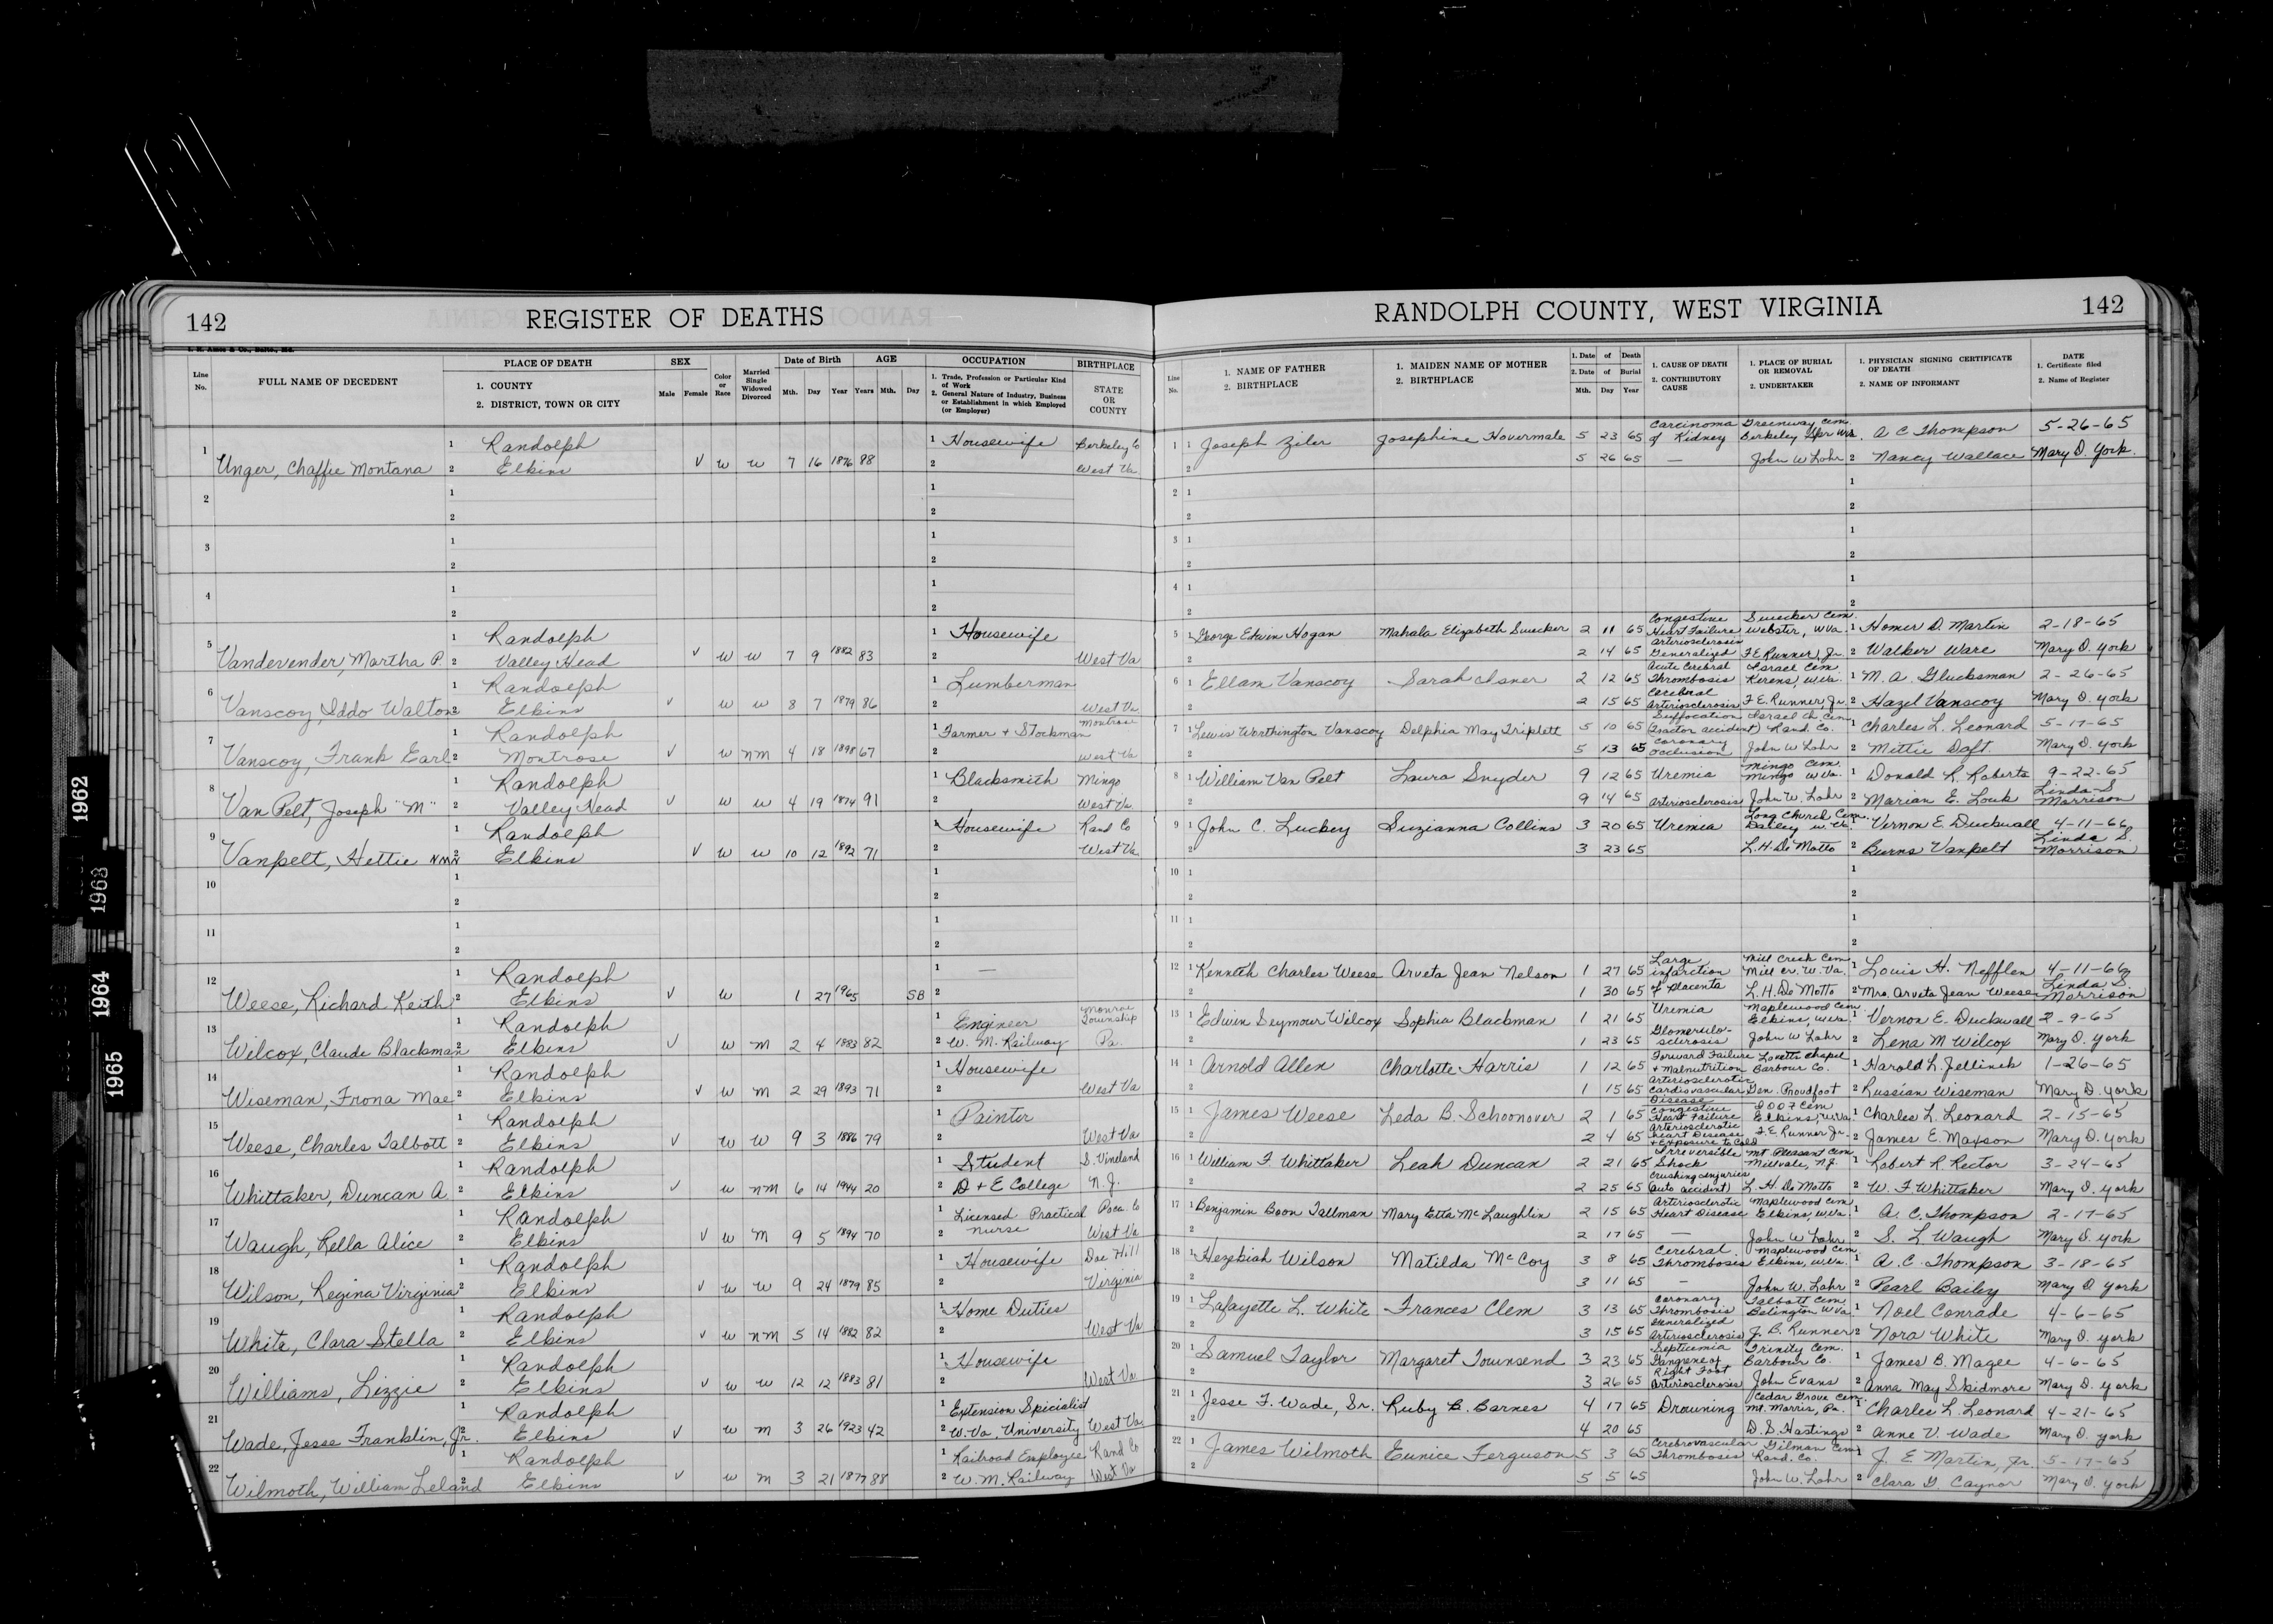 142 REGISTER OF DEATHS
RANDOLPH COUNTY, WEST VIRGINIA 142
Line No.
FULL NAME OF DECEDENT
PLACE OF DEATH
1. COUNTY
2. DISTRICT, TOWN OR CITY
SEX
Male Female
Color or Race
Married Single Widowed Divorced
Date of Birth
Mth. Day Year
AGE
Years Mth. Day
OCCUPATION
1. Trade, Profession or Particular Kind of Work
2. General Nature of Industry, Business or Establishment in which Employed (or Employer)
BIRTHPLACE
STATE OR COUNTY
Line No.
1. NAME OF FATHER
2. BIRTHPLACE
1. MAIDEN NAME OF MOTHER
2. BIRTHPLACE
1. Date of Death
2. Date of Burial
Mth. Day Year
1. CAUSE OF DEATH
2. CONTRIBUTORY CAUSE
1. PLACE OF BURIAL OR REMOVAL
2. UNDERTAKER
1. PHYSICIAN SIGNING CERTIFICATE OF DEATH
2. NAME OF INFORMANT
DATE
1. Certificate filed
2. Name of Register
1 1 Randolph 1 Housewife Berkeley Co 1 1 Joseph Ziler Josephine Hovermale 5 23 65 Carcinoma of Kidney Greenway Cem. Berkeley Spr WVa. A C Thompson 5-26-65
Unger, Chaffie Montana 2 Elkins V W W 7 16 1876 88 2 West Va 2 5 26 65 — John W Lohr 2 Nancy Wallace Mary D. York.
2 1 1 2 1 1
2 2 2 2
3 1 1 3 1 1
2 2 2 2
4 1 1 4 1 1
2 2 2 2
5 1 Randolph 1 Housewife 5 1 George Edwin Hogan Mahala Elizabeth Swecker 2 11 65 Congestive Heart Failure Swecker Cem. Webster, WVa. 1 Homer D. Martin 2-18-65
Vandevender, Martha P. 2 Valley Head V W W 7 9 1882 83 2 West Va 2 2 14 65 Arteriosclerosis Generalized F E Runner, Jr. 2 Walker Ware Mary D. York
6 1 Randolph 1 Lumberman 6 1 Ellam Vanscoy Sarah Isner 2 12 65 Acute Cerebral Thrombosis Israel Cem Kerens, WVa. 1 M. A. Glucksman 2-26-65
Vanscoy, Iddo Walton 2 Elkins V W W 8 7 1879 86 2 West Va 2 2 15 65 Cerebral Arteriosclerosis F E. Runner, Jr. 2 Hazel Vanscoy Mary D. York
7 1 Randolph 1 Farmer + Stockman Montrose 7 1 Lewis Worthington Vanscoy Delphia May Triplett 5 10 65 Suffocation (tractor accident) Israel Ch Cem Rand. Co. 1 Charles L. Leonard 5-17-65
Vanscoy, Frank Earl 2 Montrose V W nm 4 18 1898 67 2 West Va 2 5 13 65 Coronary Occlusion John W Lohr 2 Mittie Daft. Mary D. York
8 1 Randolph 1 Blacksmith Mingo 8 1 William Van Pelt Laura Snyder 9 12 65 Uremia Mingo Cem. Mingo WVa. 1 Donald R. Roberts 9-22-65
Van Pelt, Joseph "M" 2 Valley Head V W W 4 19 1874 91 2 West Va. 2 9 14 65 Arteriosclerosis John W. Lohr 2 Marian E. Louk Linda S Morrison
9 1 Randolph 1 Housewife Rand Co 9 1 John C. Luckey Suzianna Collins 3 20 65 Uremia Long Church Cem. Dailey W. Va 1 Vernon E. Duckwall 4-11-66
Vanpelt, Hettie NMN 2 Elkins V W W 10 12 1892 71 2 West Va. 2 3 23 65 L. H. De Motto 2 Burns Vanpelt Linda S. Morrison
10 1 1 10 1 1
2 2 2 2
11 1 1 11 1 1
2 2 2 2
12 1 Randolph 1 — 12 1 Kenneth Charles Weese Arveta Jean Nelson 1 27 65 Large infarction of Placenta Mill Creek Cem Mill Cr. W. Va. 1 Louis H. Nefflen 4-11-66
Weese, Richard Keith 2 Elkins V W 1 27 1965 SB 2 2 1 30 65 L. H. De Motto 2 Mrs. Arveta Jean Weese Linda S. Morrison
13 1 Randolph 1 Engineer Monroe Township 13 1 Edwin Seymour Wilcox Sophia Blackman 1 21 65 Uremia Maplewood Cem Elkins, WVa. 1 Vernon E. Duckwall 2-9-65
Wilcox, Claude Blackman 2 Elkins V W M 2 4 1883 82 2 W. M. Railway Pa. 2 1 23 65 Glomerulo-sclerosis John W Lohr 2 Lena M Wilcox Mary D. York
14 1 Randolph 1 Housewife 14 1 Arnold Allen Charlotte Harris 1 12 65 Forward Failure + Malnutrition Lovetts Chapel Barbour Co. 1 Harold L. Jellinek 1-26-65
Wiseman, Frona Mae 2 Elkins V W M 2 29 1893 71 2 West Va 2 1 15 65 Arteriosclerotic Cardiovascular Disease Gen. Proudfoot 2 Russian Wiseman Mary D. York
15 1 Randolph 1 Painter 15 1 James Weese Leda B. Schoonover 2 1 65 Congestive Heart Failure IOOF Cem Elkins, WVa. 1 Charles L. Leonard 2-15-65
Weese, Charles Talbott 2 Elkins V W W 9 3 1886 79 2 West Va 2 2 4 65 Arteriosclerotic heart Disease + Exposure to Cold F. E. Runner Jr. 2 James E. Maxson Mary D. York
16 1 Randolph 1 Student S. Vineland 16 1 William F. Whittaker Leah Duncan 2 21 65 Irreversible Shock Mt Pleasant Cem Millvale, N.J. 1 Robert R. Rector 3-24-65
Whittaker, Duncan A. 2 Elkins V W nm 6 14 1944 20 2 D + E College N. J. 2 2 25 65 Crushing injuries (auto accident) L. H. De Motto 2 W. F. Whittaker Mary D. York
17 1 Randolph 1 Licensed Practical Poca. Co 17 1 Benjamin Boon Tallman Mary Etta McLaughlin 2 15 65 Arteriosclerotic Heart Disease Maplewood Cem. Elkins, WVa. 1 A. C. Thompson 2-17-65
Waugh, Rella Alice 2 Elkins V W M 9 5 1894 70 2 nurse West Va 2 2 17 65 — John W Lohr 2 S. L Waugh Mary D. York
18 1 Randolph 1 Housewife Doe Hill 18 1 Hezekiah Wilson Matilda McCoy 3 8 65 Cerebral Thrombosis Maplewood Cem Elkins, WVa. 1 A. C. Thompson 3-18-65
Wilson, Regina Virginia 2 Elkins V W W 9 24 1879 85 2 Virginia 2 3 11 65 — John W. Lohr 2 Pearl Bailey Mary D York
19 1 Randolph 1 Home Duties 19 1 Lafayette L. White Frances Clem 3 13 65 Coronary Thrombosis Talbott Cem. Belington WVa. 1 Noel Conrade 4-6-65
White, Clara Stella 2 Elkins V W nm 5 14 1882 82 2 West Va 2 3 15 65 Generalized Arteriosclerosis J. B. Runner 2 Nora White Mary D. York
20 1 Randolph 1 Housewife 20 1 Samuel Taylor Margaret Townsend 3 23 65 Septicemia Gangrene of Right Foot Trinity Cem. Barbour Co. 1 James B. Magee 4-6-65
Williams, Lizzie 2 Elkins V W W 12 12 1883 81 2 West Va 2 3 26 65 Arteriosclerosis John Evans 2 Anna May Skidmore Mary D. York
21 1 Randolph 1 Extension Spicialist 21 1 Jesse F. Wade, Sr. Ruby B. Barnes 4 17 65 Drowning Cedar Grove Cem. Mt. Morris, Pa. 1 Charles L. Leonard 4-21-65
Wade, Jesse Franklin, Jr. 2 Elkins V W M 3 26 1923 42 2 W. Va. University West Va. 2 4 20 65 D. S. Hastings 2 Anne V. Wade Mary D. York
22 1 Randolph 1 Railroad Employee Rand Co 22 1 James Wilmoth Eunice Ferguson 5 3 65 Cerebrovascular Thrombosis Gilman Cem Rand. Co. 1 J. E Martin, Jr. 5-17-65
Wilmoth, William Leland 2 Elkins V W M 3 21 1877 88 2 W. M. Railway West Va 2 5 5 65 John W. Lohr 2 Clara G. Caynor Mary D. York
1962
1963
1964
1965